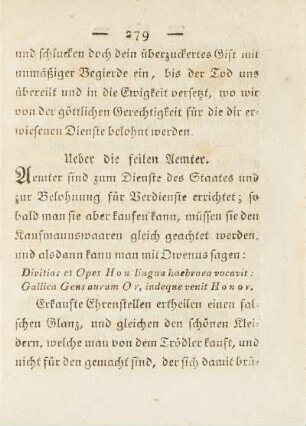 — 279 —
und schlucken doch dein überzuckertes Gift mit
unmäßiger Begierde ein, bis der Tod uns
übereilt und in die Ewigkeit versetzt, wo wir
von der göttlichen Gerechtigkeit für die dir er-
wiesenen Dienste belohnt werden.
Ueber die feilen Aemter.
Aemter sind zum Dienste des Staates und
zur Belohnung für Verdienste errichtet; so
bald man sie aber kaufen kann, müssen sie den
Kaufmannswaaren gleich geachtet werden,
und alsdann kann man mit Owenus sagen:
Divitias et Opes Hon lingua haebraea vocavit:
Gallica Gens aurum Or, indeque venit Honor.
Erkaufte Ehrenstellen ertheilen einen fal-
schen Glanz, und gleichen den schönen Klei-
dern, welche man von dem Trödler kauft, und
nicht für den gemacht sind, der sich damit brü-